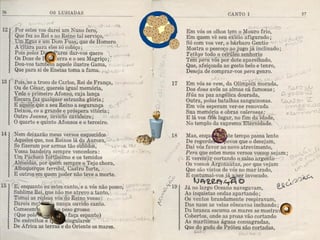 36
OS LUSIADAS
12
Por estes vos darei um Nuno fero,
Que fez ao Rei e ao Reino tal serviço,
Um Egas e um Dom Fuas, que de Homero
A cítara para eles só cobiço;
Pois pelos Doze Pares dar-vos quero
Os Doze de Inglaterra e o seu Magriço;
Dou-vos também aquele ilustre Gama,
Que para si de Eneias toma a fama.
13
Pois, se a troco de Carlos, Rei de França,
Ou de César, quereis igual memória,
Vede o primeiro Afonso, cuja lança
Escura faz qualquer estranha glória;
E aquele que a seu Reino a segurança
Deixou, co a grande e próspera vitória;
Outro Joane, invicto cavaleiro;
O quarto e quinto Afonsos e o terceiro.
14
Nem deixarão meus versos esquecidos
Aqueles que, nos Reinos lá da Aurora,
Se fizeram por armas tão subidos,
Vossa bandeira sempre vencedora:
Um Pacheco fortíssimo e os temidos
Almeidas, por quem sempre o Tejo chora,
Albuquerque terríbil, Castro forte,
E outros em quem poder não teve a morte.
15
E, enquanto eu estes canto, e a vós não posso,
Sublime Rei, que não me atrevo a tanto,
Tomai as rédeas vós do Reino vosso:
Dareis matéria a nunca ouvido canto.
Comecem a sentir o peso grosso
(Que polo mundo todo faça espanto)
De exércitos e feitos singulares
De África as terras e do Oriente os mares.
CANTO I
37
16
Em vós os olhos tem o Mouro frio,
Em quem vê seu exício afigurado;
Só com vos ver, o bárbaro Gentio
Mostra o pescoço ao jugo já inclinado;
Tethys todo o cerúleo senhorio
Tem pera vós por dote aparelhado,
Que, afeiçoada ao gesto belo e tenro,
Deseja de comprar-vos pera genro.
17
Em vós se vêm, da Olímpica morada,
Dos dous avós as almas cá famosas;
Ũa na paz angélica dourada,
Outra, pelas batalhas sanguinosas.
Em vós esperam ver-se renovada
Sua memória e obras valerosas;
E lá vos têm lugar, no fim da idade,
No templo da suprema Eternidade.
18
Mas, enquanto este tempo passa lento
De regerdes os povos que o desejam,
Dai vós favor ao novo atrevimento,
Pera que estes meus versos vossos sejam;
E vereis ir cortando o salso argento
Os vossos Argonautas, por que vejam
Que são vistos de vós no mar irado,
E costumai-vos já a ser invocado.
NARRAÇÃO
19
Já no largo Oceano navegavam,
As inquietas ondas apartando;
Os ventos brandamente respiravam,
Das naus as velas côncavas inchando;
Da branca escuma os mares se mostravam
Cobertos, onde as proas vão cortando
As marítimas águas consagradas,
Que do gado de Próteu são cortadas,